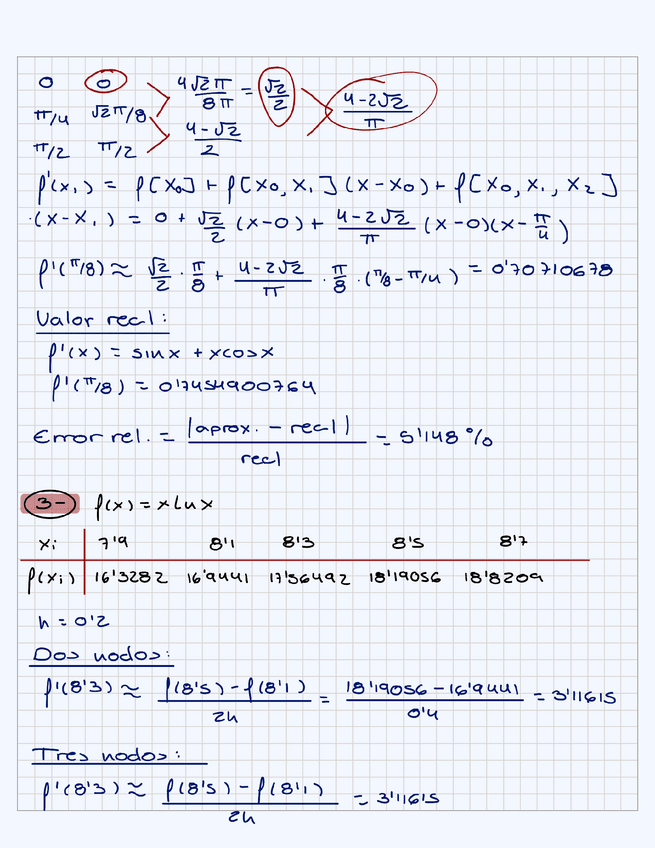 0   0   4√2π/8π = √2/2   (4-2√2)/π
π/4   √2π/8   (4-√2)/2
π/2   π/2
f'(x,) = f[x0] + f[x0,x1](x-x0) + f[x0,x1,x2]
·(x-x1) = 0 + √2/2 (x-0) + (4-2√2)/π (x-0)(x-π/4)
f'(π/8) ≈ √2/2 · π/8 + (4-2√2)/π · π/8 · (π/8-π/4) = 0'70710678
Valor real:
f'(x) = sinx + xcosx
f'(π/8) = 0'7454900764
Error rel. = |aprox. - real|/real = 5'148%
3- f(x) = x lnx
xi   7'9   8'1   8'3   8'5   8'7
f(xi)   16'3282   16'9441   17'56492   18'19056   18'8209
h = 0'2
Dos nodos:
f'(8'3) ≈ (f(8'5) - f(8'1))/2h = (18'19056 - 16'9441)/0'4 = 3'11615
Tres nodos:
f'(8'3) ≈ (f(8'5) - f(8'1))/2h = 3'11615